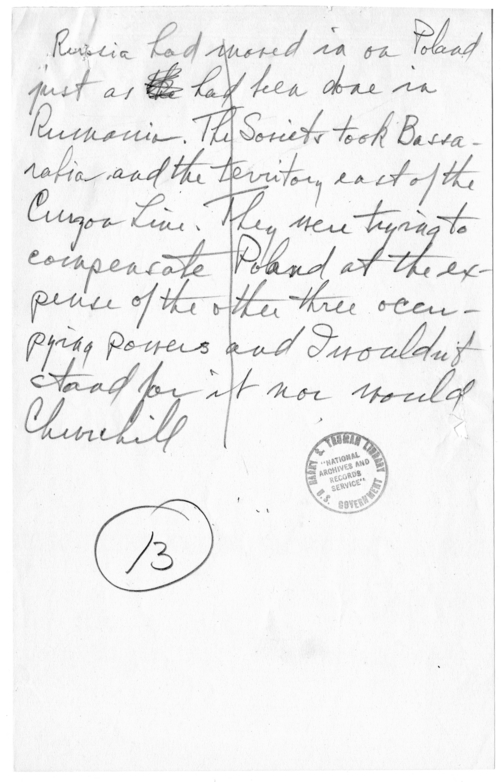 Russia had moved in on Poland
just as had been done in
Rumania. The Soviets took Bassa-
rabia and the territory east of the
Curzon Line. They were trying to
compensate Poland at the ex-
pense of the other three occu-
pying powers and I wouldn't
stand for it nor would
Churchill
HARRY S. TRUMAN LIBRARY
"NATIONAL
ARCHIVES AND
RECORDS
SERVICE"
U.S. GOVERNMENT
13